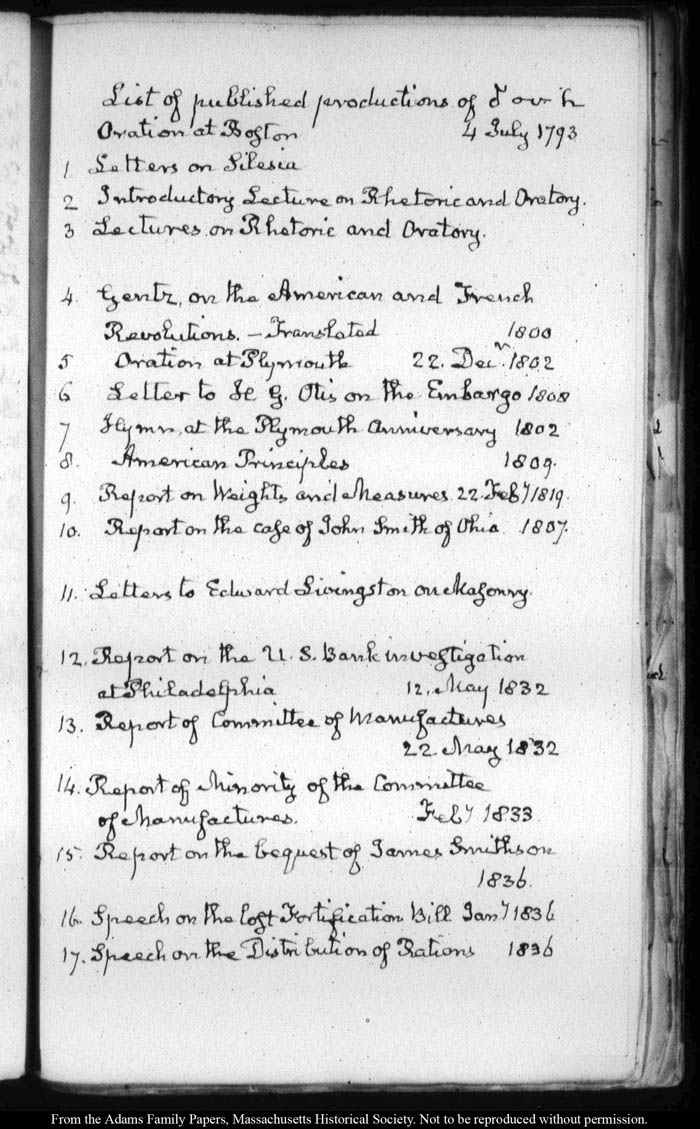 List of published productions of
Oration at Boston 4 July 1793
1 Letters on Silesia
2 Introductory Lecture on Rhetoric and Oratory.
3 Lectures on Rhetoric and Oratory.
4. Gentz, on the American and French
Revolutions. — Translated 1800
5 Oration at Plymouth 22. Decr. 1802
6 Letter to H. G. Otis on the Embargo 1808
7 Hymn, at the Plymouth Anniversary 1802
8. American Principles 1809.
9. Report on Weights and Measures. 22. Feby 1819.
10. Report on the case of John Smith of Ohio. 1807.
11. Letters to Edward Livingston on Masonry.
12. Report on the U. S. Bank investigation
at Philadelphia 12. May 1832
13. Report of Committee of Manufactures
22. May 1832
14. Report of Minority of the Committee
of Manufactures. Feby 1833.
15. Report on the bequest of James Smithson
1836.
16. Speech on the lost Fortification Bill Jany 1836
17. Speech on the Distribution of Rations 1836
From the Adams Family Papers, Massachusetts Historical Society. Not to be reproduced without permission.